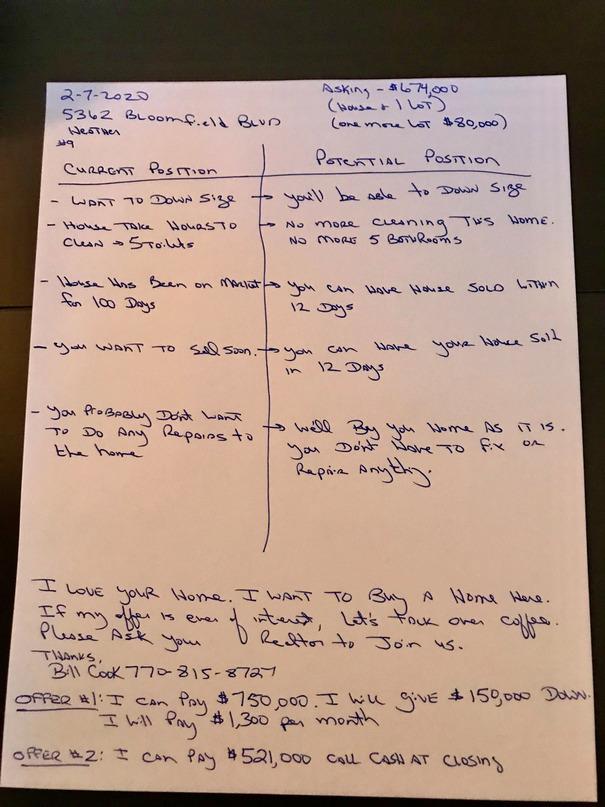 2-7-2020
Asking - $674,000
5362 Bloomfield Blvd
(House + 1 Lot)
(one more Lot $80,000)
Heather
#9
Current Position
Potential Position
- Want To Down Size → you'll be able to Down Size
- House Take Hours To → No more cleaning This Home.
Clean → 5 Toilets
No more 5 Bathrooms
- House Has Been on Market → you can Have House Sold Within
for 100 Days
12 Days
- you Want To Sell Soon. → you can Have your House Sold
in 12 Days
- you Probably Don't Want
To Do Any Repairs to → We'll By you Home As it is.
the home
you Don't Have To fix or
Repair Anything.
I Love your Home. I Want To Buy A Home Here.
If my offer is ever of interest, Let's talk over coffee.
Please Ask your Realtor to Join us.
Thanks,
Bill Cook 770-815-8727
Offer #1: I can Pay $750,000. I will give $150,000 Down.
I will Pay $1,300 per month
Offer #2: I can Pay $521,000 call cash at closing